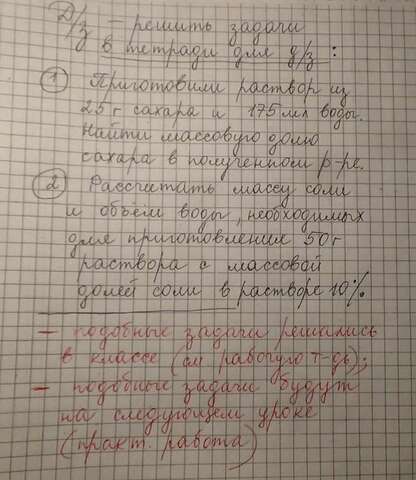 Д/з – решить задачи
в тетради для д/з :
① Приготовили раствор из
25 г сахара и 175 мл воды.
Найти массовую долю
сахара в полученном р-ре.
② Рассчитать массу соли
и объём воды, необходимых
для приготовления 50 г
раствора с массовой
долей соли в растворе 10%.
– подобные задачи решались
в классе (см рабочую т-дь);
– подобные задачи будут
на следующем уроке
(практ. работа)